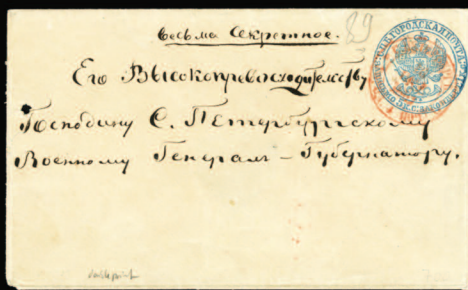 весьма Секретное.
89
Его Высокопревосходительству
Господину С. Петербургскому
Военному Генералъ – Губернатору.